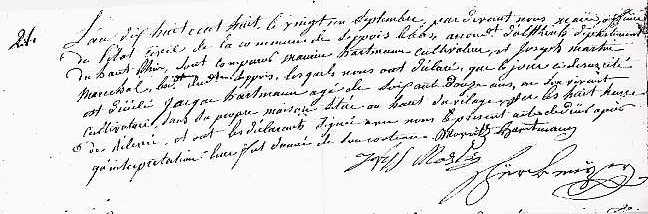 21.
L'an dix huit cent huit, le vingt un Septembre, par devant nous maire officier
de l'état civil de la commune de Seppois le bas, arrond.t d'altkirch, département
du haut Rhin, sont comparus Maurice hartmann cultivateur, et joseph martin
Marechal, dud. Seppois, lesquels nous ont déclaré, que le jour cidessus cité
est décédé Jacque hartmann agé de soixant douze ans, en son vivant
cultivateur, dans sa propre maison située au haut du vilage, vers les huit heure
de relevée, et ont les déclarants signée avec nous le présent acte dedüit après
qu'interpretation leur fut donnée de son contenue. Moritz Hartmann